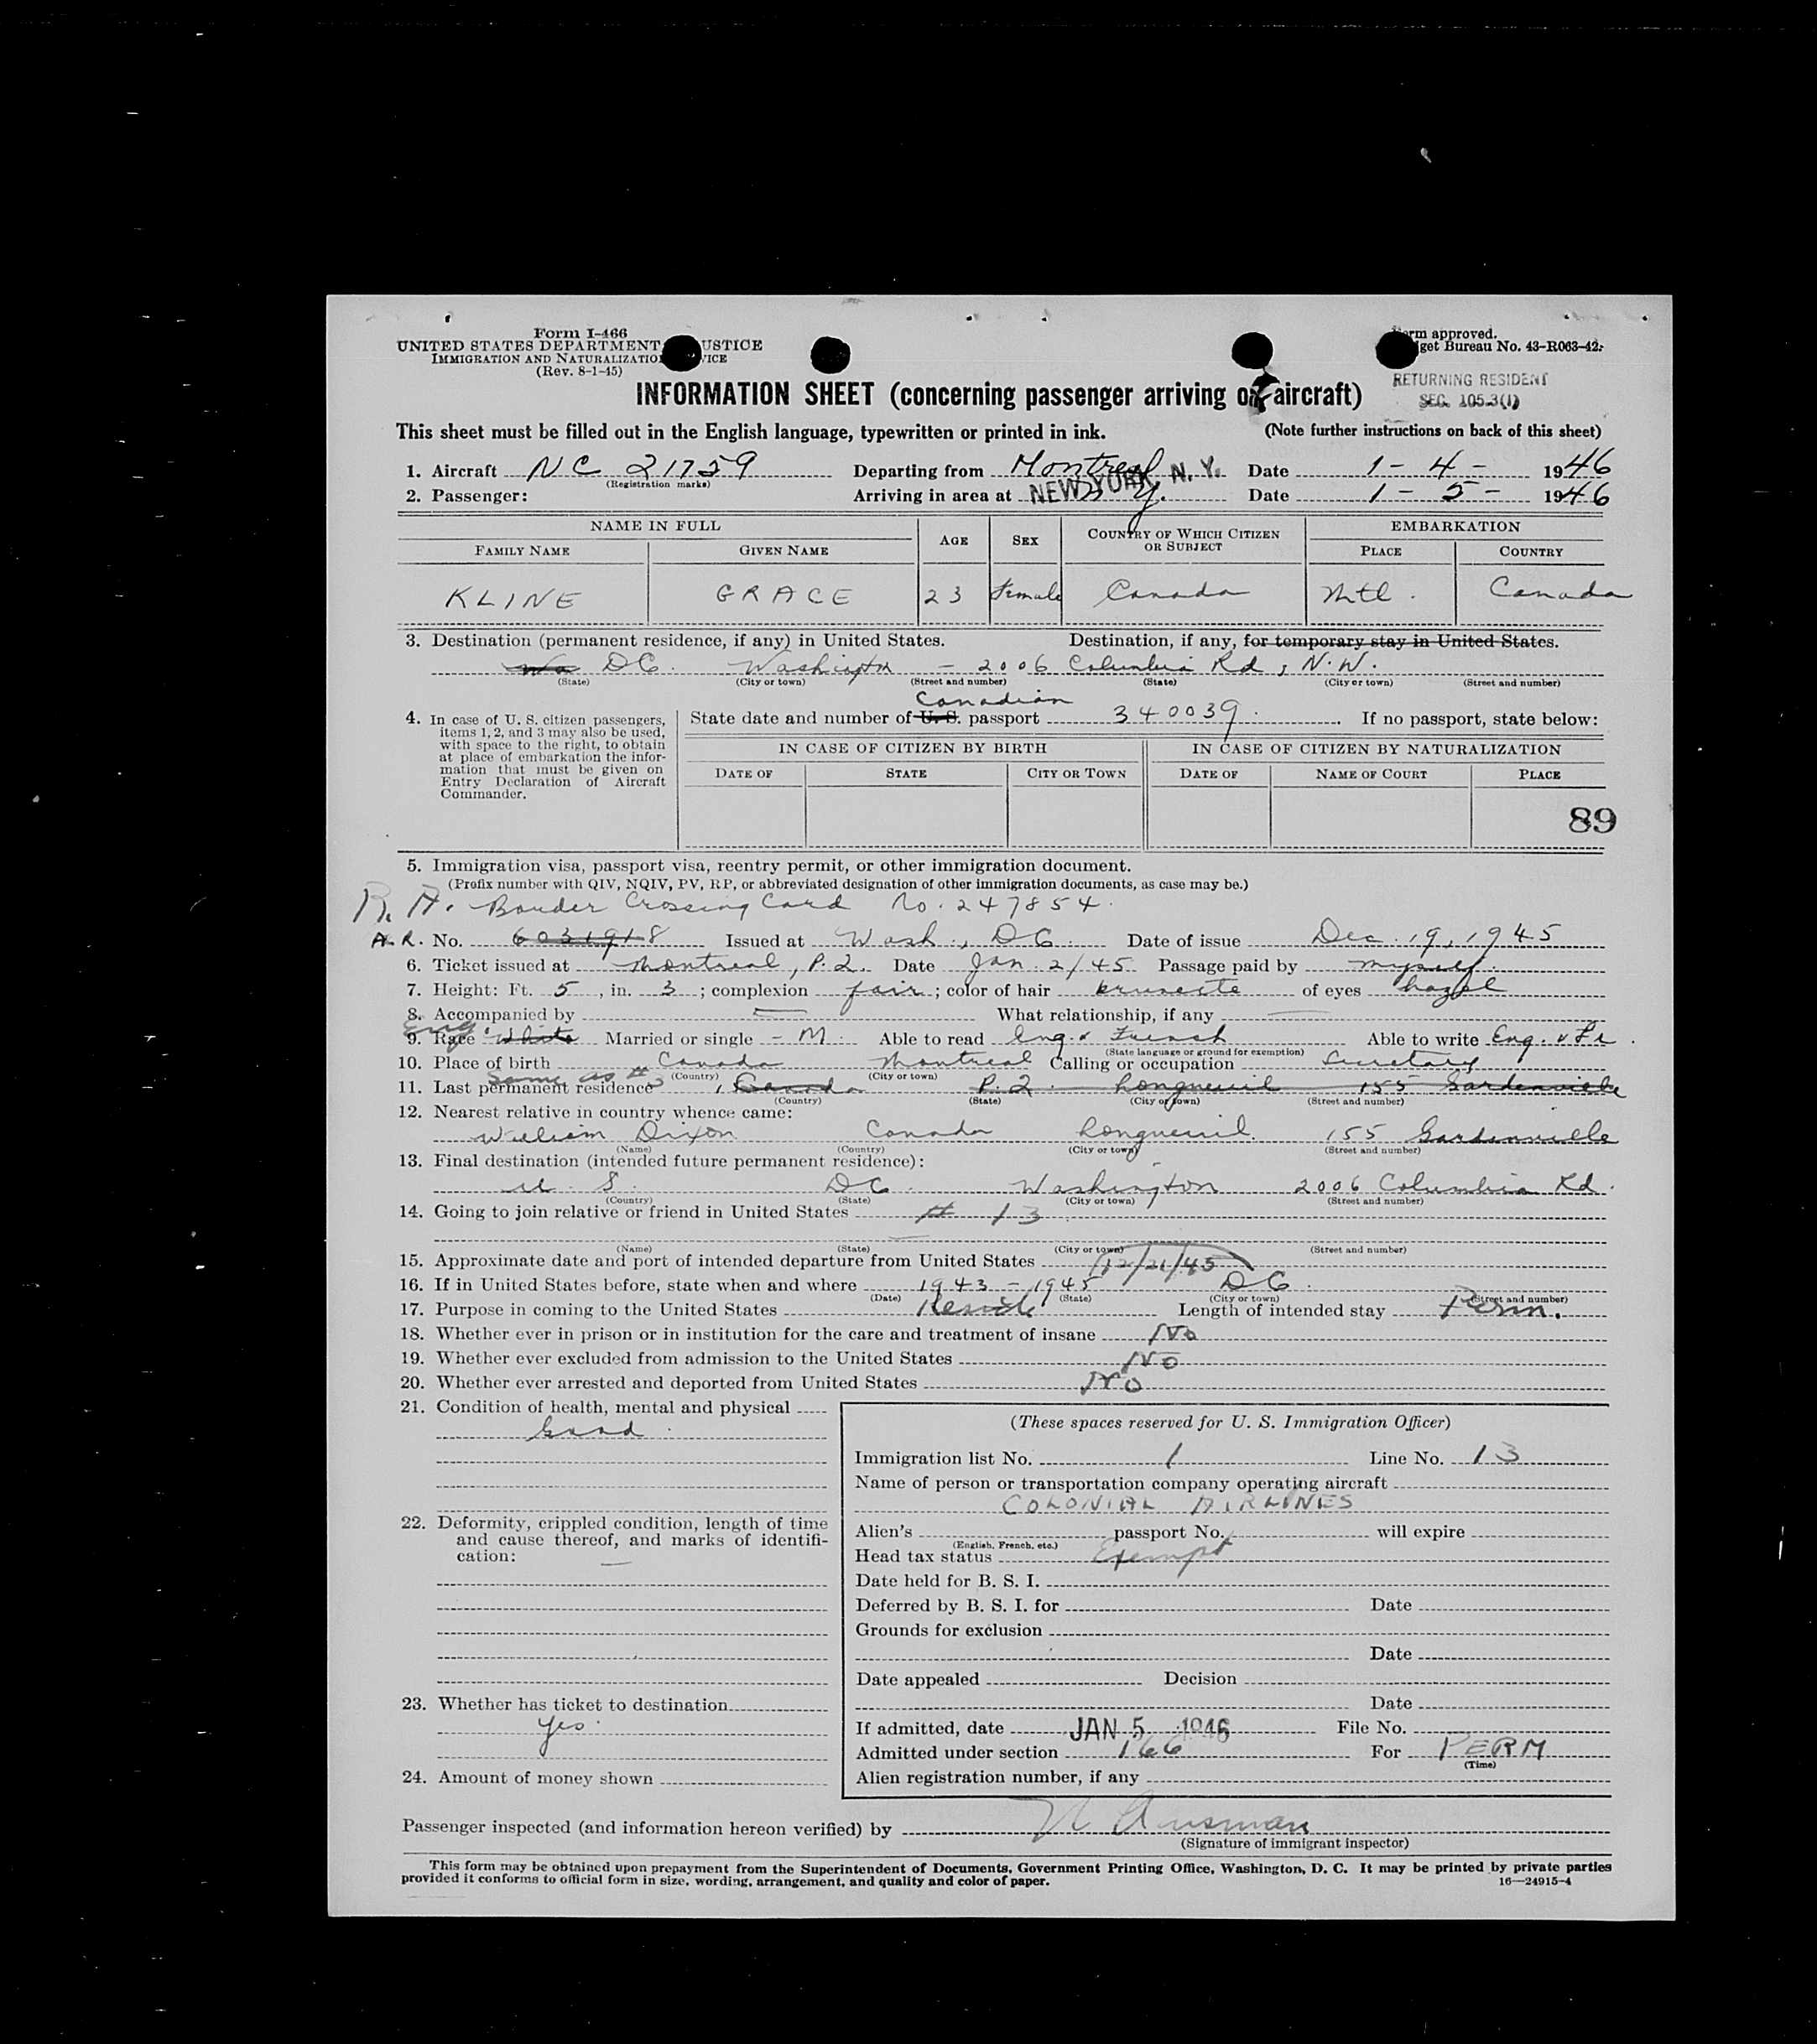 Form I-466
UNITED STATES DEPARTMENT USTICE
IMMIGRATION AND NATURALIZATIO VICE
(Rev. 8-1-45)
rm approved.
get Bureau No. 43-R063-42.
INFORMATION SHEET (concerning passenger arriving on aircraft)
RETURNING RESIDENT
SEC. 105.3(1)
This sheet must be filled out in the English language, typewritten or printed in ink. (Note further instructions on back of this sheet)
1. Aircraft NC 21759 Departing from Montreal Date 1-4- 1946
(Registration marks)
2. Passenger: Arriving in area at NEW YORK, N. Y. Date 1-5- 1946
NAME IN FULL AGE SEX COUNTRY OF WHICH CITIZEN OR SUBJECT EMBARKATION
FAMILY NAME GIVEN NAME PLACE COUNTRY
KLINE GRACE 23 Female Canada Mtl. Canada
3. Destination (permanent residence, if any) in United States. Destination, if any, for temporary stay in United States.
DC. Washington - 2006 Columbia Rd, N.W.
(State) (City or town) (Street and number) (State) (City or town) (Street and number)
Canadian
4. In case of U. S. citizen passengers, items 1, 2, and 3 may also be used, with space to the right, to obtain at place of embarkation the information that must be given on Entry Declaration of Aircraft Commander.
State date and number of U. S. passport 340039. If no passport, state below:
IN CASE OF CITIZEN BY BIRTH IN CASE OF CITIZEN BY NATURALIZATION
DATE OF STATE CITY OR TOWN DATE OF NAME OF COURT PLACE
89
5. Immigration visa, passport visa, reentry permit, or other immigration document.
(Prefix number with QIV, NQIV, PV, RP, or abbreviated designation of other immigration documents, as case may be.)
R. A. Border Crossing Card No. 247854.
A.R. No. 6031918 Issued at Wash., DC. Date of issue Dec. 19, 1945
6. Ticket issued at Montreal, P.Q. Date Jan. 2/45 Passage paid by myself.
7. Height: Ft. 5, in. 3; complexion fair; color of hair brunette of eyes hazel
8. Accompanied by — What relationship, if any —
Eng.
9. Race White Married or single - M. Able to read Eng. & French Able to write Eng. & Fr.
(State language or ground for exemption)
10. Place of birth Canada Montreal Calling or occupation Secretary
(Country) (City or town)
Same as #
11. Last permanent residence Canada P.Q. Longueuil 155 Gardenville
(Country) (State) (City or town) (Street and number)
12. Nearest relative in country whence came:
William Dixon Canada Longueuil. 155 Gardenville
(Name) (Country) (City or town) (Street and number)
13. Final destination (intended future permanent residence):
U. S. DC. Washington 2006 Columbia Rd.
(Country) (State) (City or town) (Street and number)
14. Going to join relative or friend in United States # 13
(Name) (State) (City or town) (Street and number)
15. Approximate date and port of intended departure from United States 12/21/45
16. If in United States before, state when and where 1943 - 1945 DC.
(Date) (State) (City or town) (Street and number)
17. Purpose in coming to the United States Reside Length of intended stay Perm.
18. Whether ever in prison or in institution for the care and treatment of insane No
19. Whether ever excluded from admission to the United States No
20. Whether ever arrested and deported from United States No
21. Condition of health, mental and physical
Good
22. Deformity, crippled condition, length of time and cause thereof, and marks of identification: —
23. Whether has ticket to destination
Yes.
24. Amount of money shown
(These spaces reserved for U. S. Immigration Officer)
Immigration list No. 1 Line No. 13
Name of person or transportation company operating aircraft
COLONIAL AIRLINES
Alien's passport No. will expire
(English, French, etc.)
Head tax status Exempt
Date held for B. S. I.
Deferred by B. S. I. for Date
Grounds for exclusion
Date
Date appealed Decision
Date
If admitted, date JAN 5 1946 File No.
Admitted under section 166 For PERM
(Time)
Alien registration number, if any
Passenger inspected (and information hereon verified) by
(Signature of immigrant inspector)
This form may be obtained upon prepayment from the Superintendent of Documents, Government Printing Office, Washington, D. C. It may be printed by private parties
provided it conforms to official form in size, wording, arrangement, and quality and color of paper. 16—24915-4